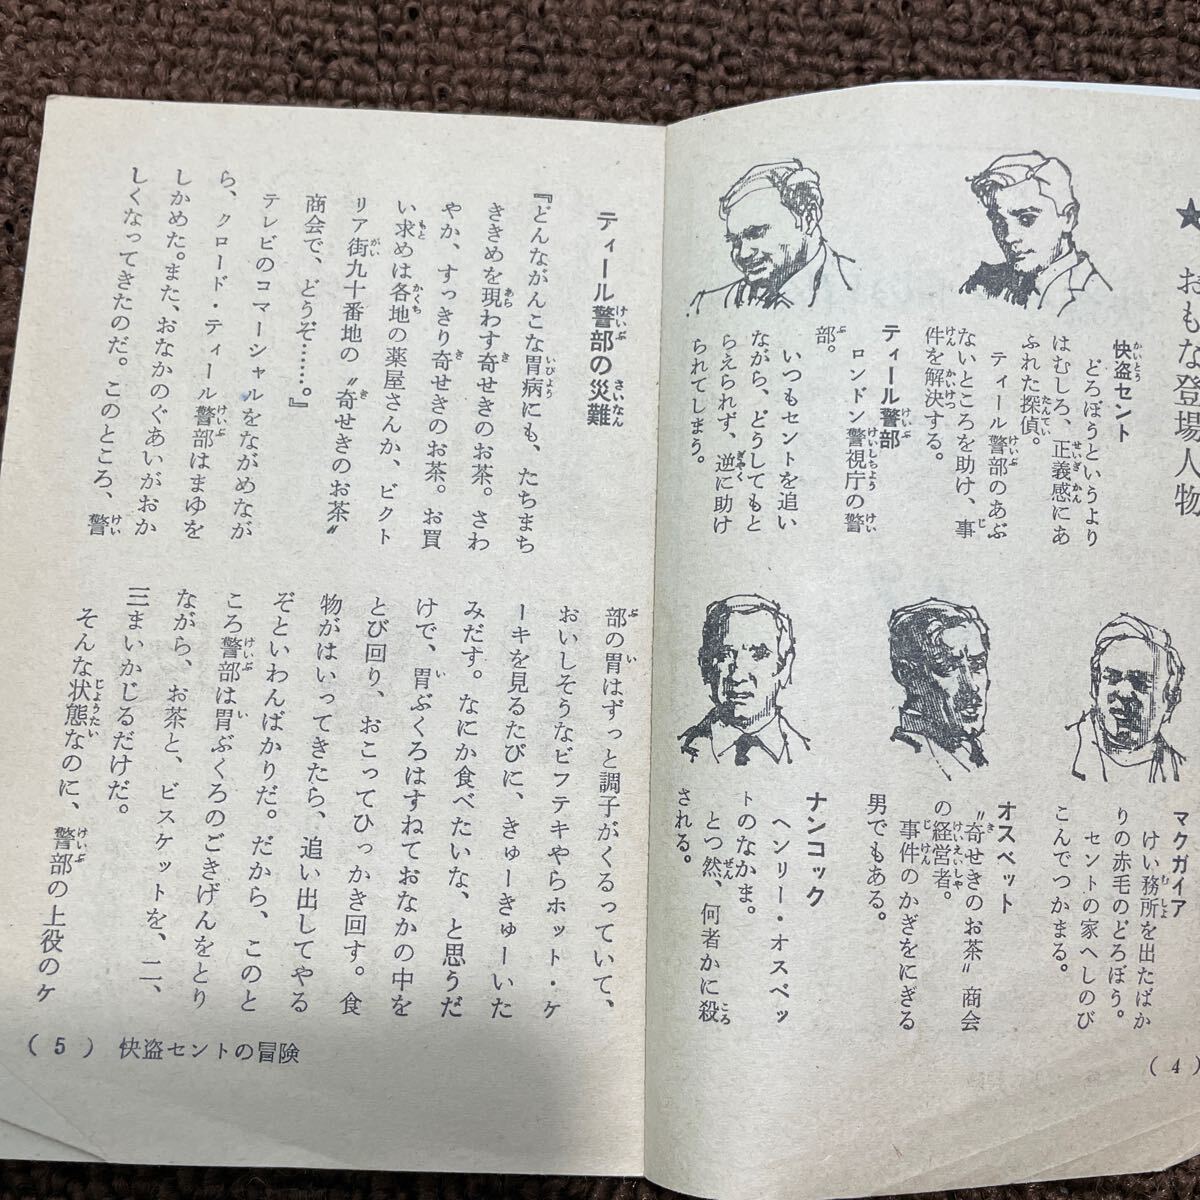 ★ おもな登場人物
快盗セント
どろぼうというより
はむしろ、正義感にあ
ふれた探偵。
ティール警部のあぶ
ないところを助け、事
件を解決する。
ティール警部
ロンドン警視庁の警
部。
いつもセントを追い
ながら、どうしてもと
らえられず、逆に助け
られてしまう。
マクガイア
けい務所を出たばか
りの赤毛のどろぼう。
セントの家へしのび
こんでつかまる。
オスペット
〝奇せきのお茶〟商会
の経営者。
事件のかぎをにぎる
男でもある。
ナンコック
ヘンリー・オスペッ
トのなかま。
とつ然、何者かに殺
される。
(4)
ティール警部の災難
『どんながんこな胃病にも、たちまち
ききめを現わす奇せきのお茶。さわ
やか、すっきり奇せきのお茶。お買
い求めは各地の薬屋さんか、ビクト
リア街九十番地の〝奇せきのお茶〟
商会で、どうぞ……。』
テレビのコマーシャルをながめなが
ら、クロード・ティール警部はまゆを
しかめた。また、おなかのぐあいがおか
しくなってきたのだ。このところ、警
部の胃はずっと調子がくるっていて、
おいしそうなビフテキやらホット・ケ
ーキを見るたびに、きゅーきゅーいた
みだす。なにか食べたいな、と思うだ
けで、胃ぶくろはすねておなかの中を
とび回り、おこってひっかき回す。食
物がはいってきたら、追い出してやる
ぞといわんばかりだ。だから、このと
ころ警部は胃ぶくろのごきげんをとり
ながら、お茶と、ビスケットを、二、
三まいかじるだけだ。
そんな状態なのに、警部の上役のケ
(5) 快盗セントの冒険